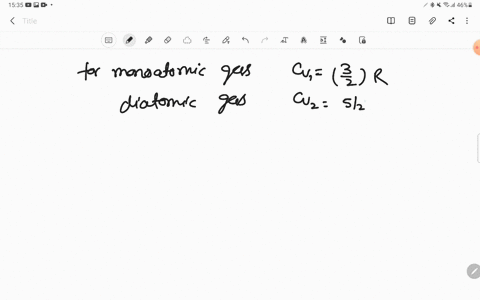 15:35 46%
Title
for monoatomic gas Cv₁ = (3/2) R
diatomic gas Cv₂ = 5/2